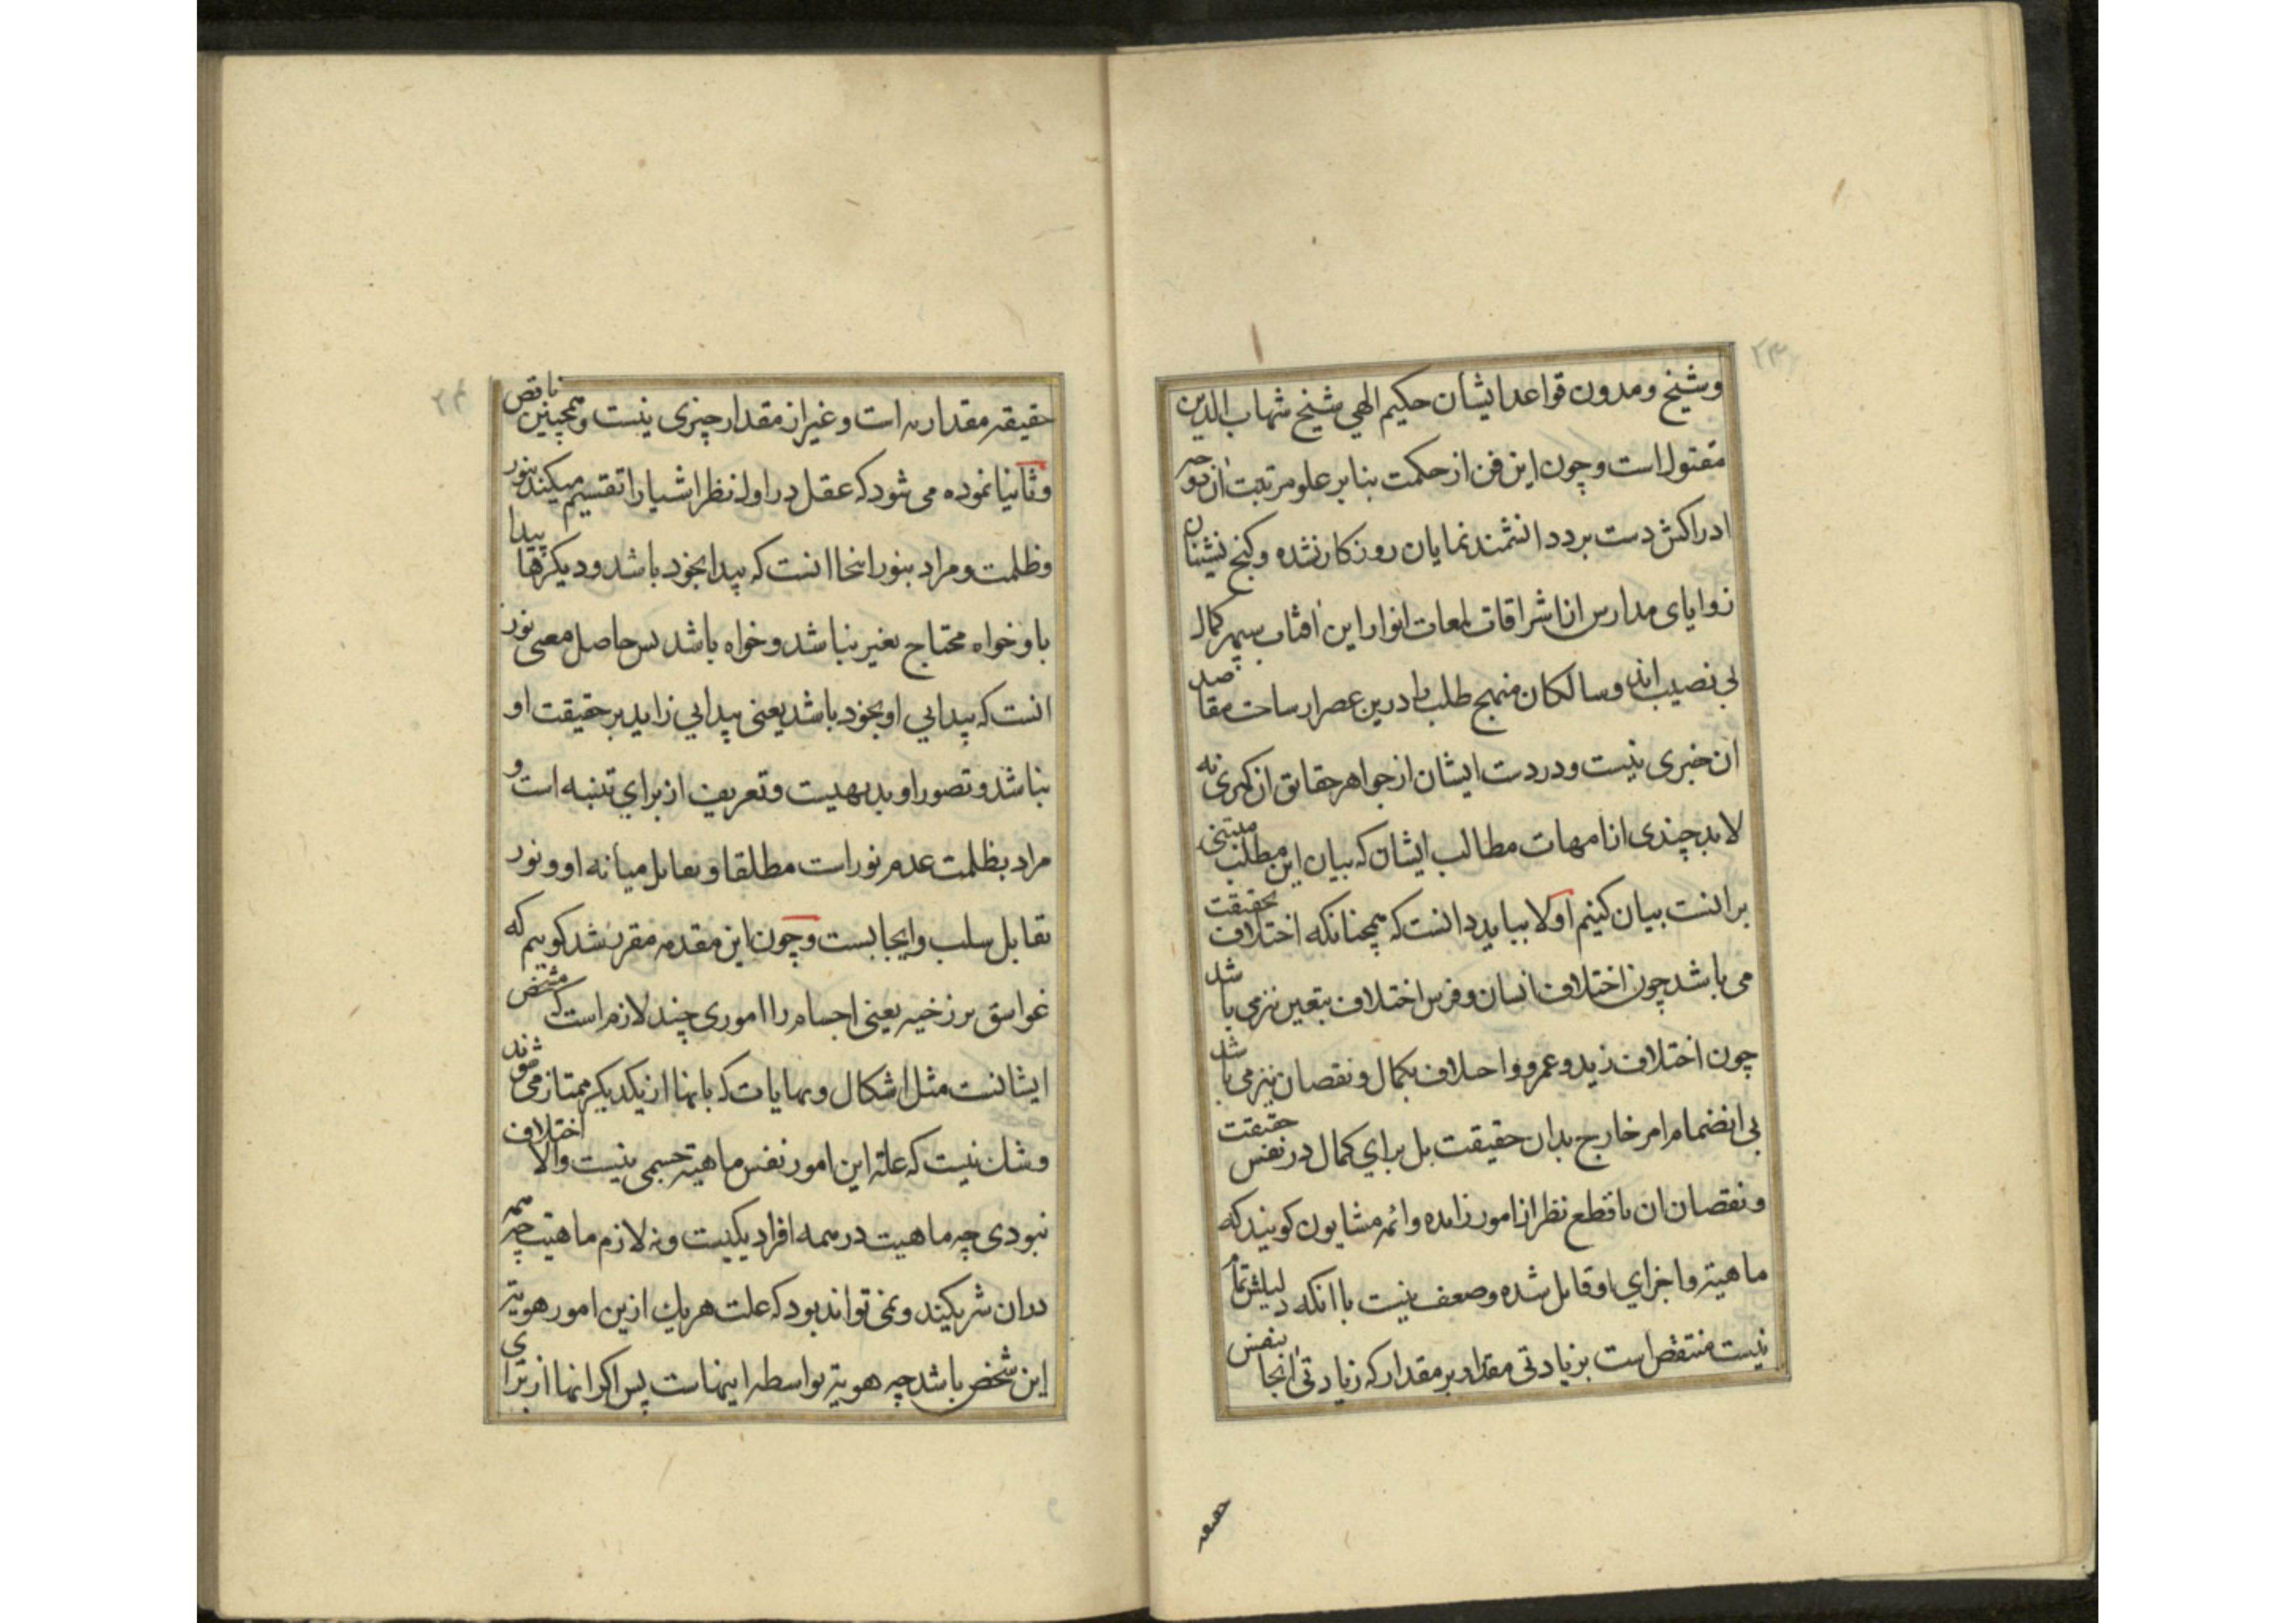 ٢٣
وشیخ ومدون قواعد ایشان حکیم الهی شیخ شهاب الدین
مقتول است وچون این فن از حکمت بنابر علو مرتبت آن دو حه
ادراکش دست برد دانشمند نمایان روزکار نشده وکنج نشینان
زوایای مدارس از اشراقات لمعات انوار این آفتاب سپهر کمال
بی نصیب اند وسالکان منهج طلب را درین عصر ار ساحت مقاصد
ان خبری نیست ودر دست ایشان از جواهر حقایق ان کبری نه
لابد چندی از امهات مطالب ایشان که بیان این مطلب مبتنی
بر انست بیان کنیم اولا بباید دانست که همچنانکه اختلاف بحقیقت
می باشد چون اختلاف انسان وفرس اختلاف بتعین نیز می باشد
چون اختلاف زید وعمرو واحلاف بکمال ونقصان نیز می باشد
بی انضمام امر خارج بدان حقیقت بل برای کمال در نفس حقیقت
ونقصان ان با قطع نظر از امور زایده وائمه مشایون کویند که
ماهیته واجزای او قابل شده وضعف نیست با انکه دلیلش تمام
نیست منتقض است بزیادتی مقدار بر مقدار که زیادتی آنجا بنفس
حقیقه
٢٤
حقیقه مقداریه است وغیر از مقدار چیزی نیست وهمچنین ناقص
وثانیا نموده می شود که عقل در اول نظر اشیا را تقسیم میکند بنور
وظلمت ومراد بنور اینجا انست که پیدا بخود باشد ودیکرها پیدا
باو خواه محتاج بغیر بناشد وخواه باشد پس حاصل معنی نور
انست که پیدایی او بخود باشد یعنی پیدایی زاید بر حقیقت او
نباشد وتصور او بدیهیست وتعریف از برای تنبیه است و
مراد بظلمت عدم نور است مطلقا وتقابل میانه او ونور
تقابل سلب وایجابست وچون این مقدمه مقرر شد کوییم که
غواسق برزخیه یعنی اجسام را اموری چند لازم است که مشخص
ایشانست مثل اشکال ونهایات که بانها از یکدیکر ممتاز می شوند
وشک نیست که علة این امور نفس ماهیته جسمی نیست والا اختلاف
نبودی چه ماهیت در همه افراد یکیست ونه لازم ماهیت چه همه
دران شریکیند ونمی تواند بود که علت هریک ازین امور هویته
این شخص باشد چه هویته بواسطه اینهاست پس اکر انها از برای